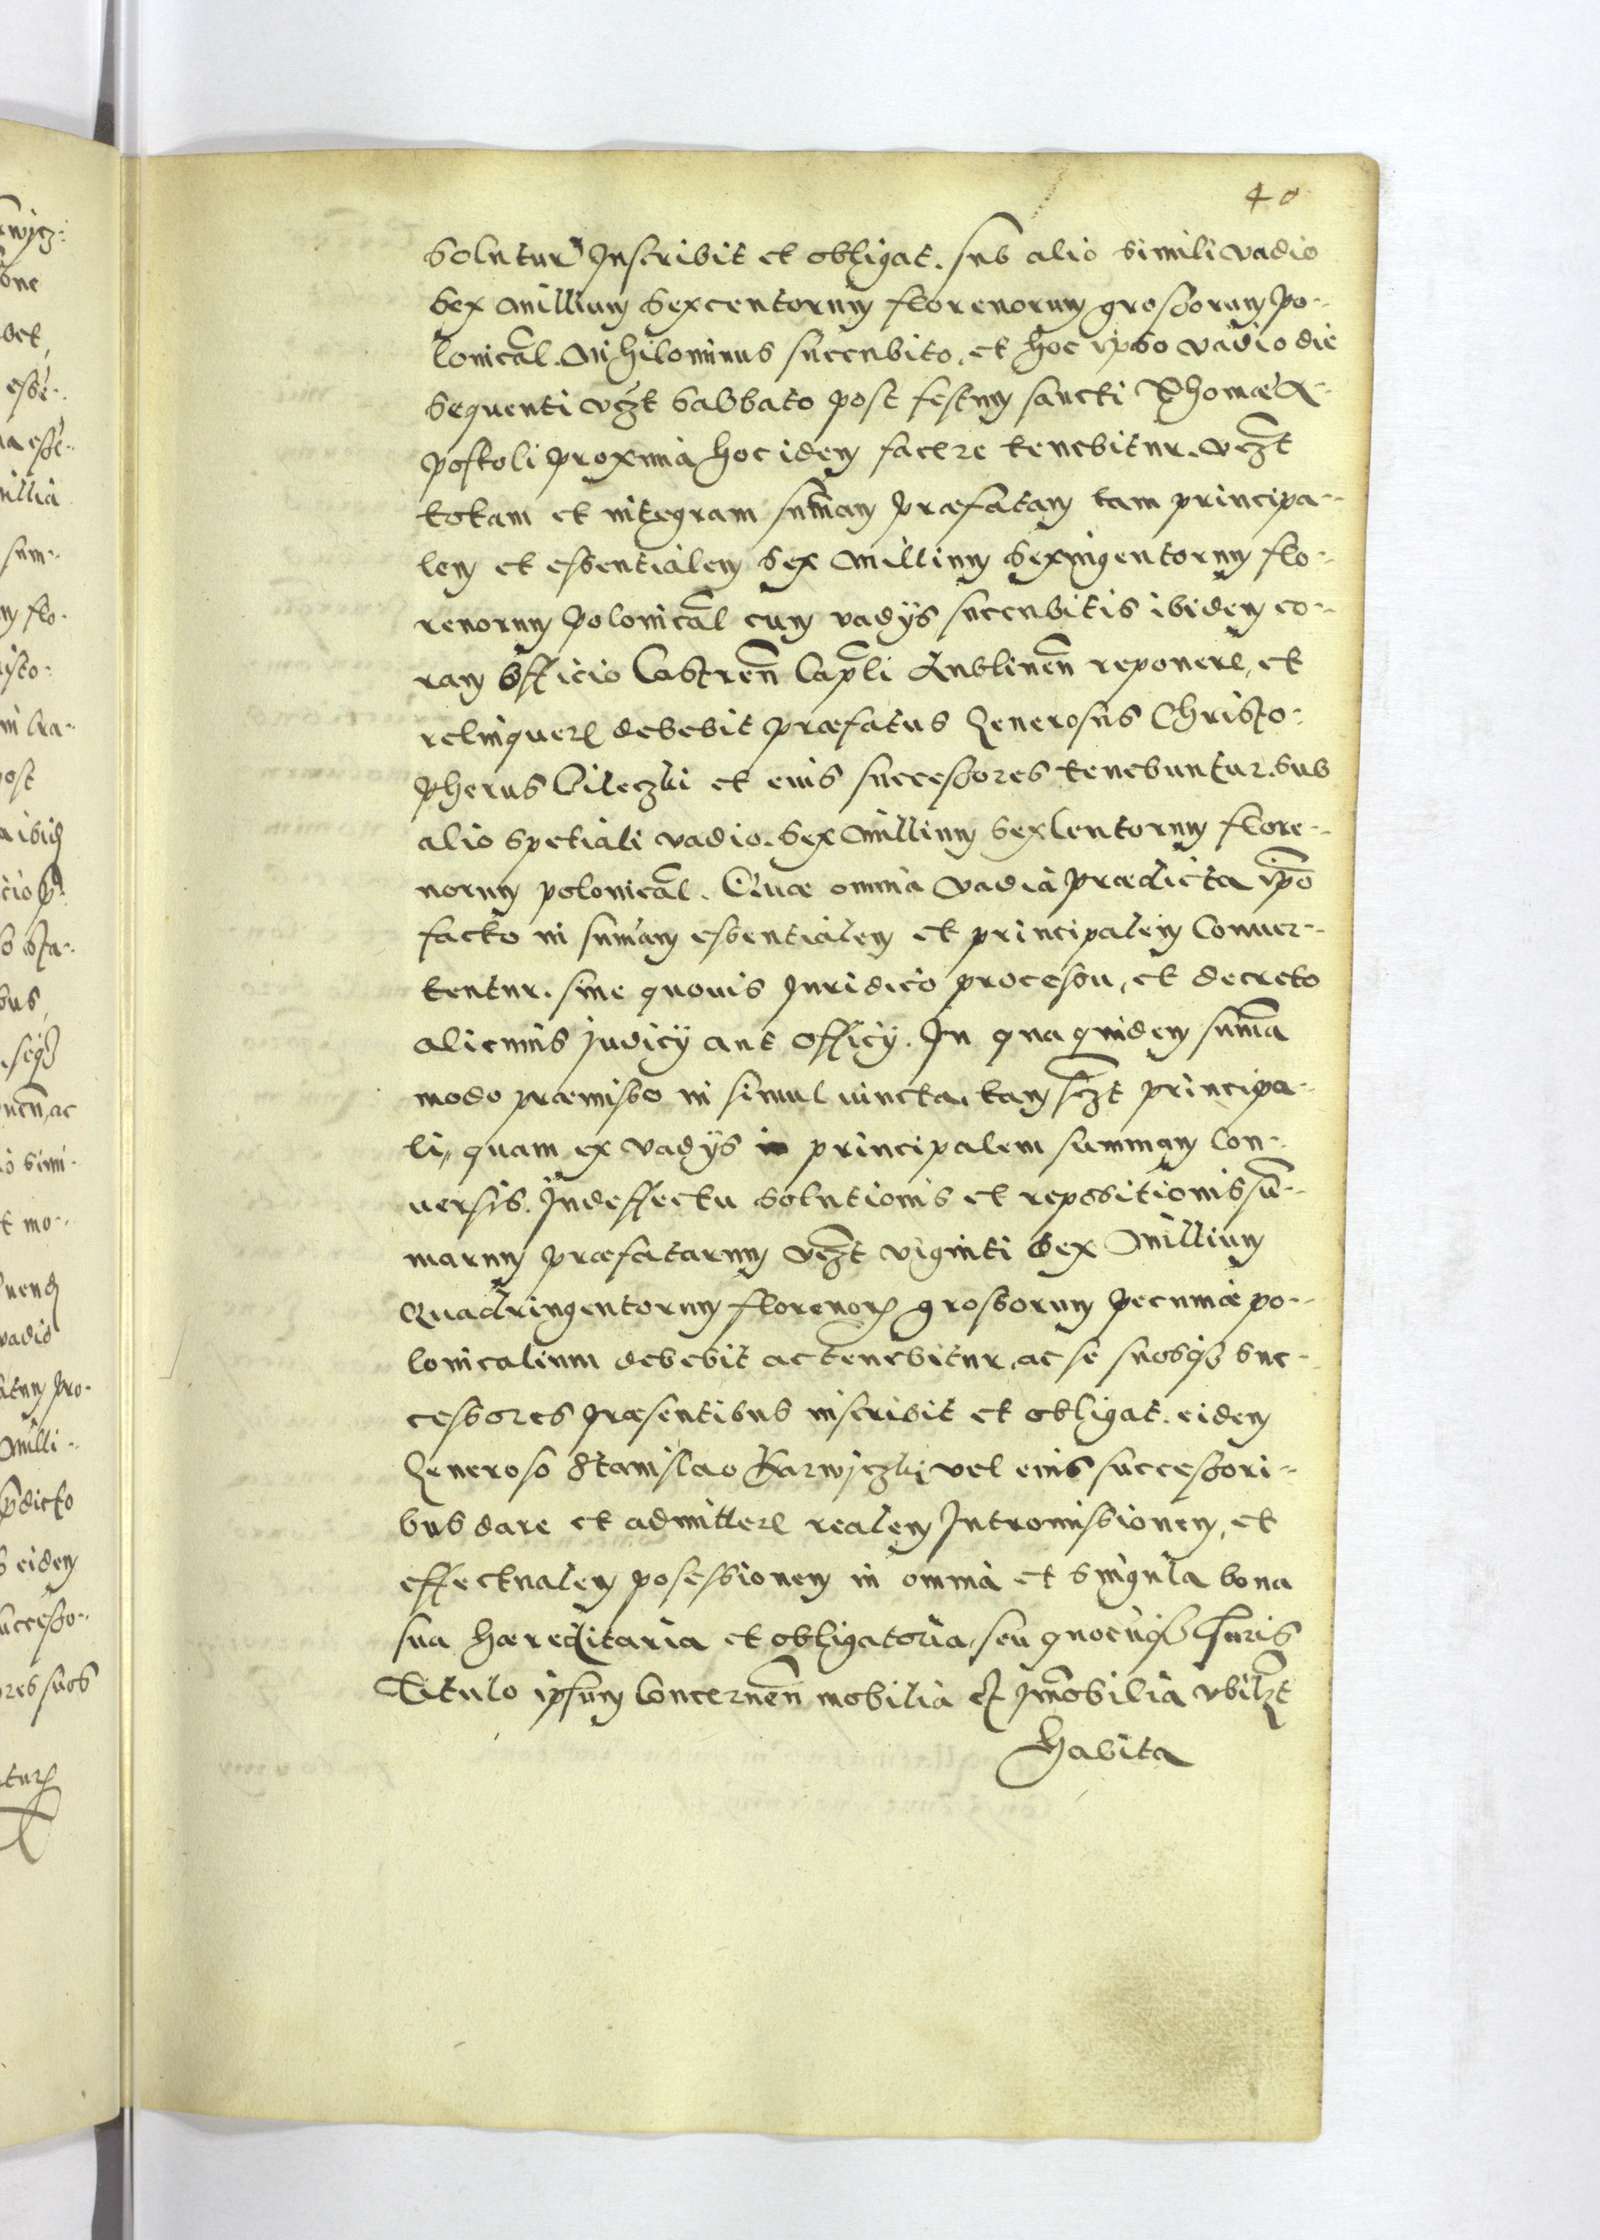 40
Soluturũ Inscribit et obligat. sub alio simili vadio
Sex Millium Sexcentorum florenorum grossorum po-
lonical. Nihilominus succubito, et hoc ipso vadio die
sequenti vczt Sabbato post festum sancti Thomæ A-
postoli proxima hoc idem facere tenebitur. vczt
totam et integram sum̃am præfatam tam principa-
lem et essentialem Sex Millium Sexingentorum flo-
renorum polonical cum vadÿs succubitis ibidem co-
ram officio Castren̄ Capl̄i Lublinen̄ reponere, et
relinquere debebit præfatus Generosus Christo-
pherus Pileczki et eius successores tenebuntur. sub
alio spetiali vadio. Sex Millium Sexcentorum flore-
norum polonical. Quæ omnia vadia prædicta ip̄o
facto in sum̃am essentialem et principalem Conuer-
tentur. sine quouis Iuridico processu, et decreto
alicuius judicÿ aut officÿ. In qua quidem sum̄a
modo præmisso in simul iuncta. tam sczt principa-
li, quam ex vadÿs in principalem summam Con-
uersis. Indeffectu solutionis et repositionis sū-
marum præfatarum vczt viginti sex Millium
Quadringentorum florenoꝝ grossorum pecuniæ po-
lonicalium debebit ac tenebitur. ac se suosqꝫ suc-
cessores præsentibus inscribit et obligat. eidem
Generoso Stanislao Karwiczki vel eius successori-
bus dare et admittere realem Intromissionem, et
effectualem posessionem in omnia et singula bona
sua hæreditaria et obligatoria, seu quocūqꝫ Iuris
Titulo ipsum Concernen̄ mobilia et Im̄obilia vbilzt
Habita